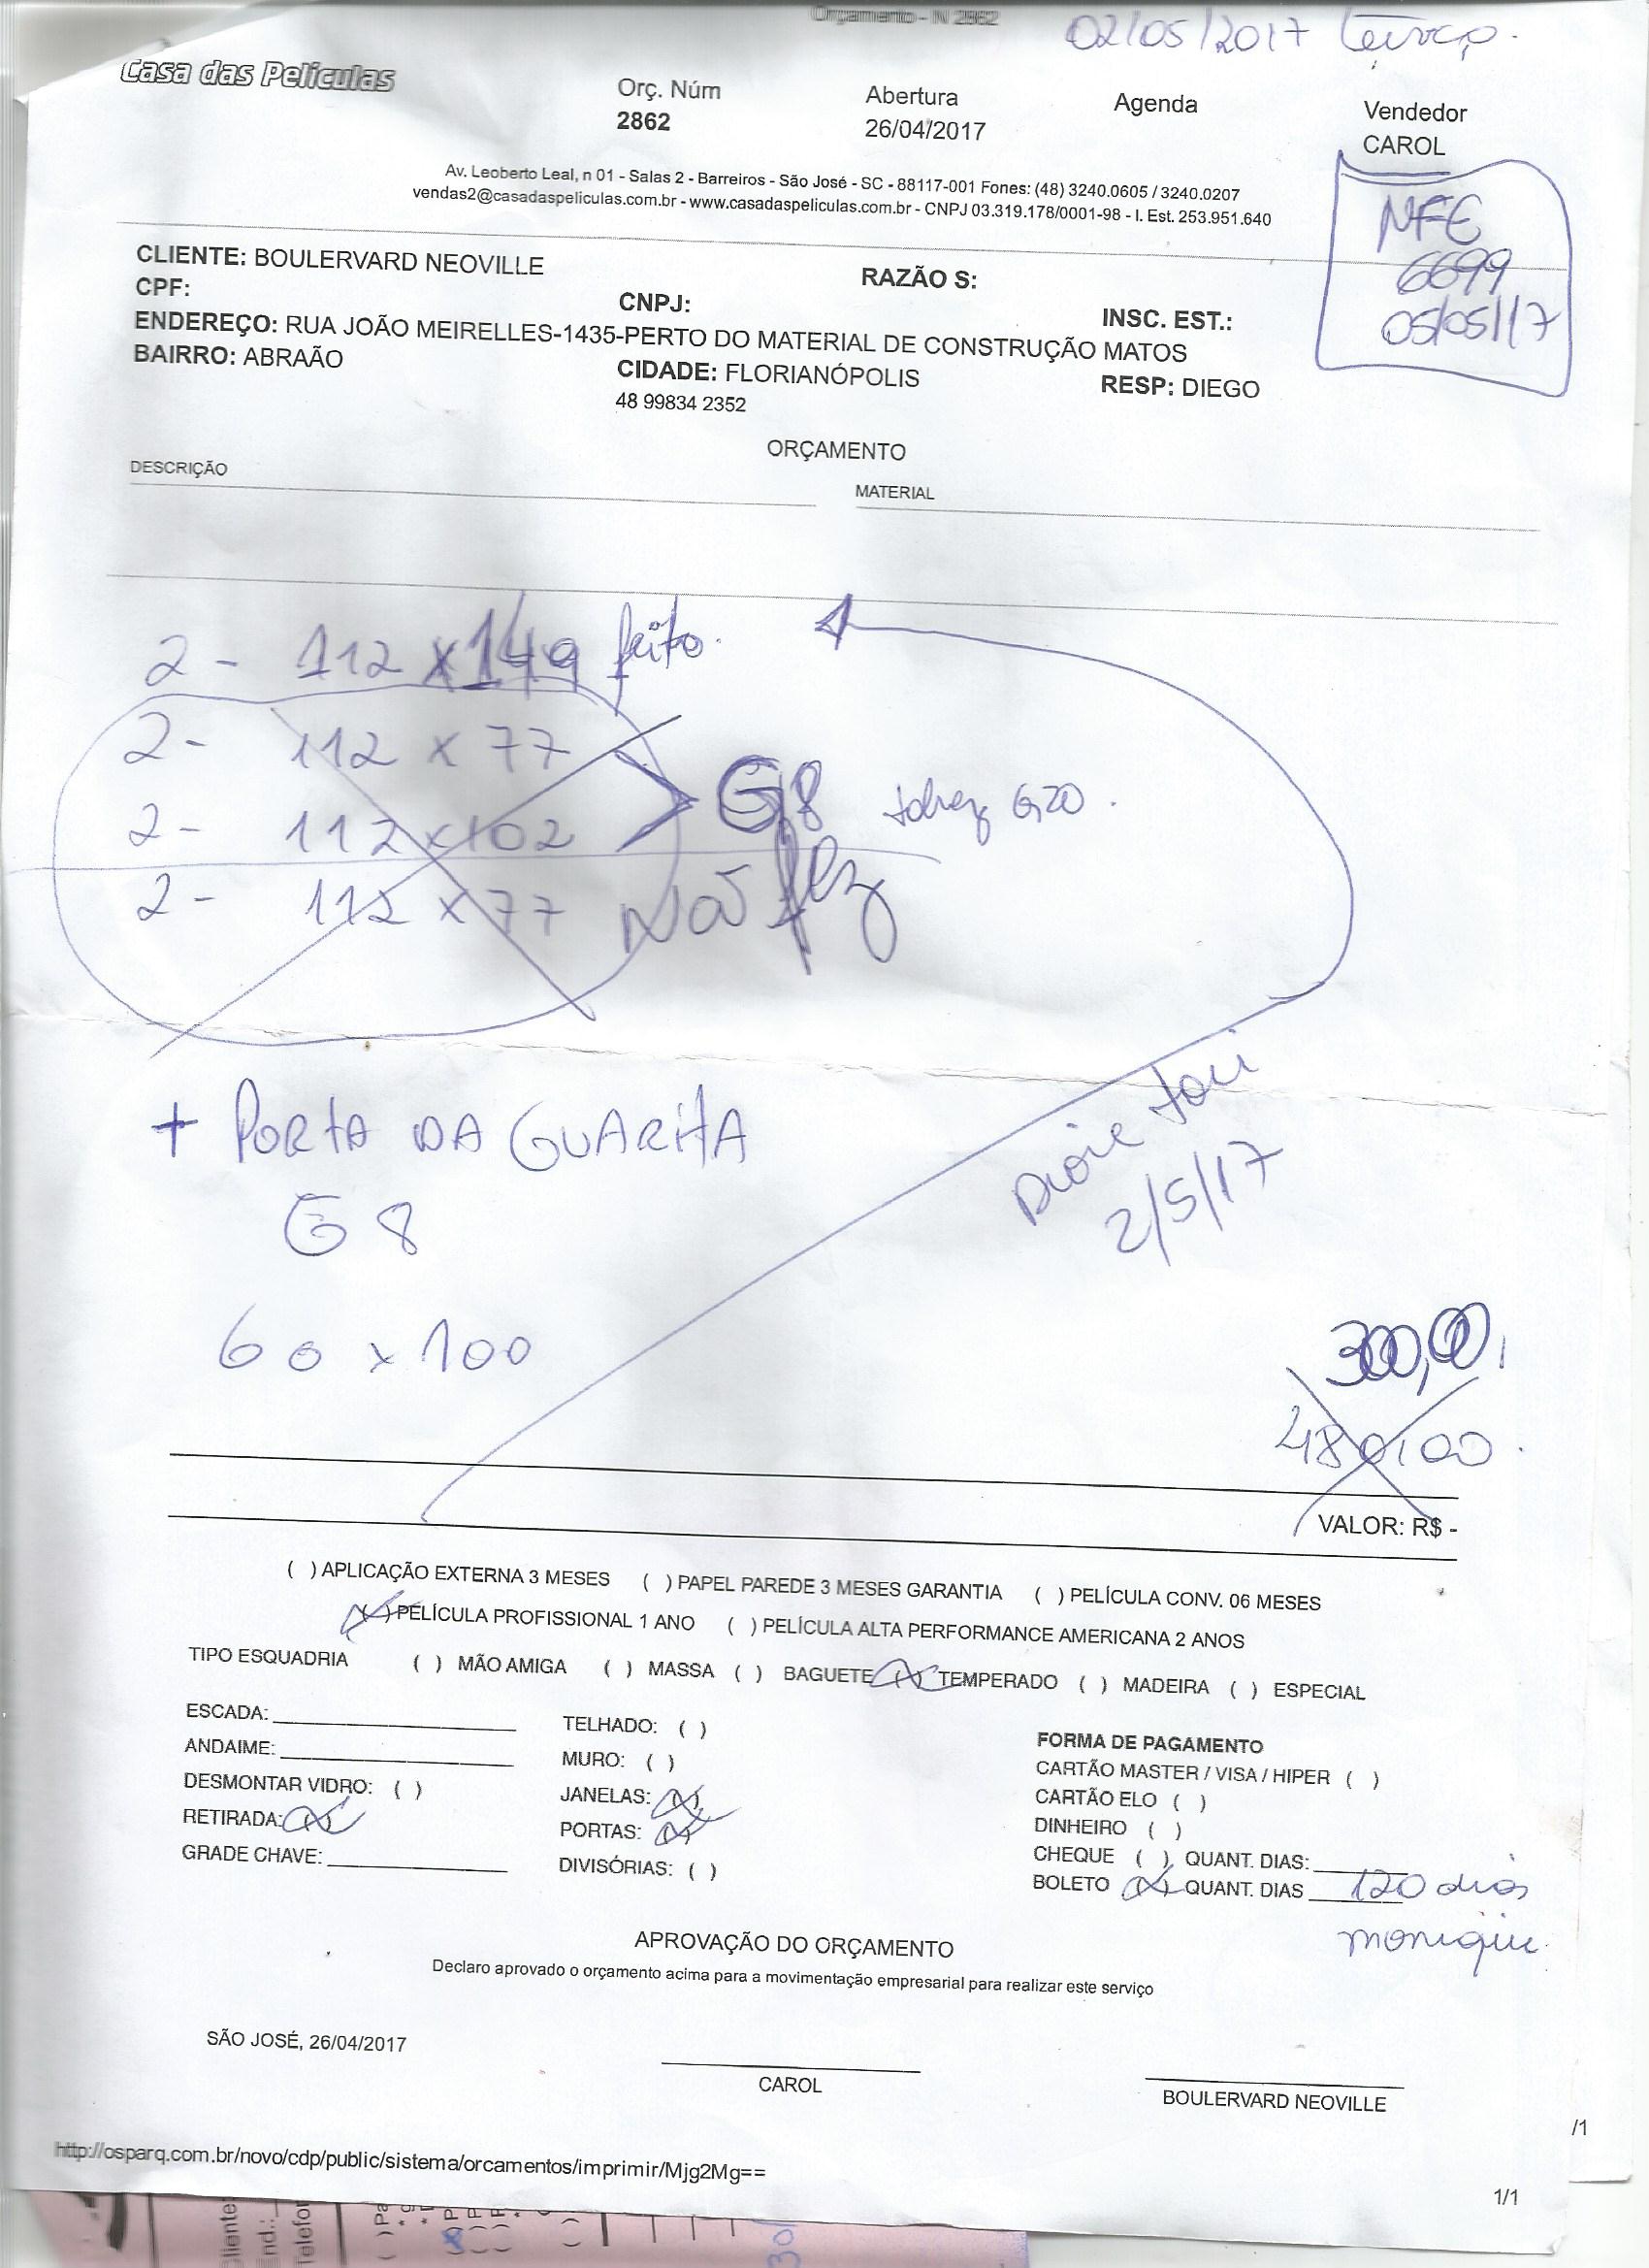 Orçamento - N 2862
02/05/2017 terça.
Casa das Películas
Orç. Núm
2862
Abertura
26/04/2017
Agenda
Vendedor
CAROL
Av. Leoberto Leal, n 01 - Salas 2 - Barreiros - São José - SC - 88117-001 Fones: (48) 3240.0605 / 3240.0207
vendas2@casadaspeliculas.com.br - www.casadaspeliculas.com.br - CNPJ 03.319.178/0001-98 - I. Est. 253.951.640
NFE
6699
05/05/17
CLIENTE: BOULERVARD NEOVILLE RAZÃO S:
CPF: CNPJ: INSC. EST.:
ENDEREÇO: RUA JOÃO MEIRELLES-1435-PERTO DO MATERIAL DE CONSTRUÇÃO MATOS
BAIRRO: ABRAÃO CIDADE: FLORIANÓPOLIS RESP: DIEGO
48 99834 2352
ORÇAMENTO
DESCRIÇÃO MATERIAL
2 - 112 x 149 feito.
2 - 112 x 77
G8 talvez G20.
2 - 112 x 102
2 - 112 x 77 Não fez
+ PORTA DA GUARITA
G8
2/5/17
60 x 100
300,00
480,00.
VALOR: R$ -
( ) APLICAÇÃO EXTERNA 3 MESES ( ) PAPEL PAREDE 3 MESES GARANTIA ( ) PELÍCULA CONV. 06 MESES
(x) PELÍCULA PROFISSIONAL 1 ANO ( ) PELÍCULA ALTA PERFORMANCE AMERICANA 2 ANOS
TIPO ESQUADRIA ( ) MÃO AMIGA ( ) MASSA ( ) BAGUETE (x) TEMPERADO ( ) MADEIRA ( ) ESPECIAL
ESCADA: TELHADO: ( )
ANDAIME: MURO: ( )
DESMONTAR VIDRO: ( ) JANELAS: (x)
RETIRADA: (x) PORTAS: (x)
GRADE CHAVE: DIVISÓRIAS: ( )
FORMA DE PAGAMENTO
CARTÃO MASTER / VISA / HIPER ( )
CARTÃO ELO ( )
DINHEIRO ( )
CHEQUE ( ) QUANT. DIAS:
BOLETO (x) QUANT. DIAS 120 dias
monique
APROVAÇÃO DO ORÇAMENTO
Declaro aprovado o orçamento acima para a movimentação empresarial para realizar este serviço
SÃO JOSÉ, 26/04/2017
CAROL
BOULERVARD NEOVILLE
/1
http://osparq.com.br/novo/cdp/public/sistema/orcamentos/imprimir/Mjg2Mg==
1/1